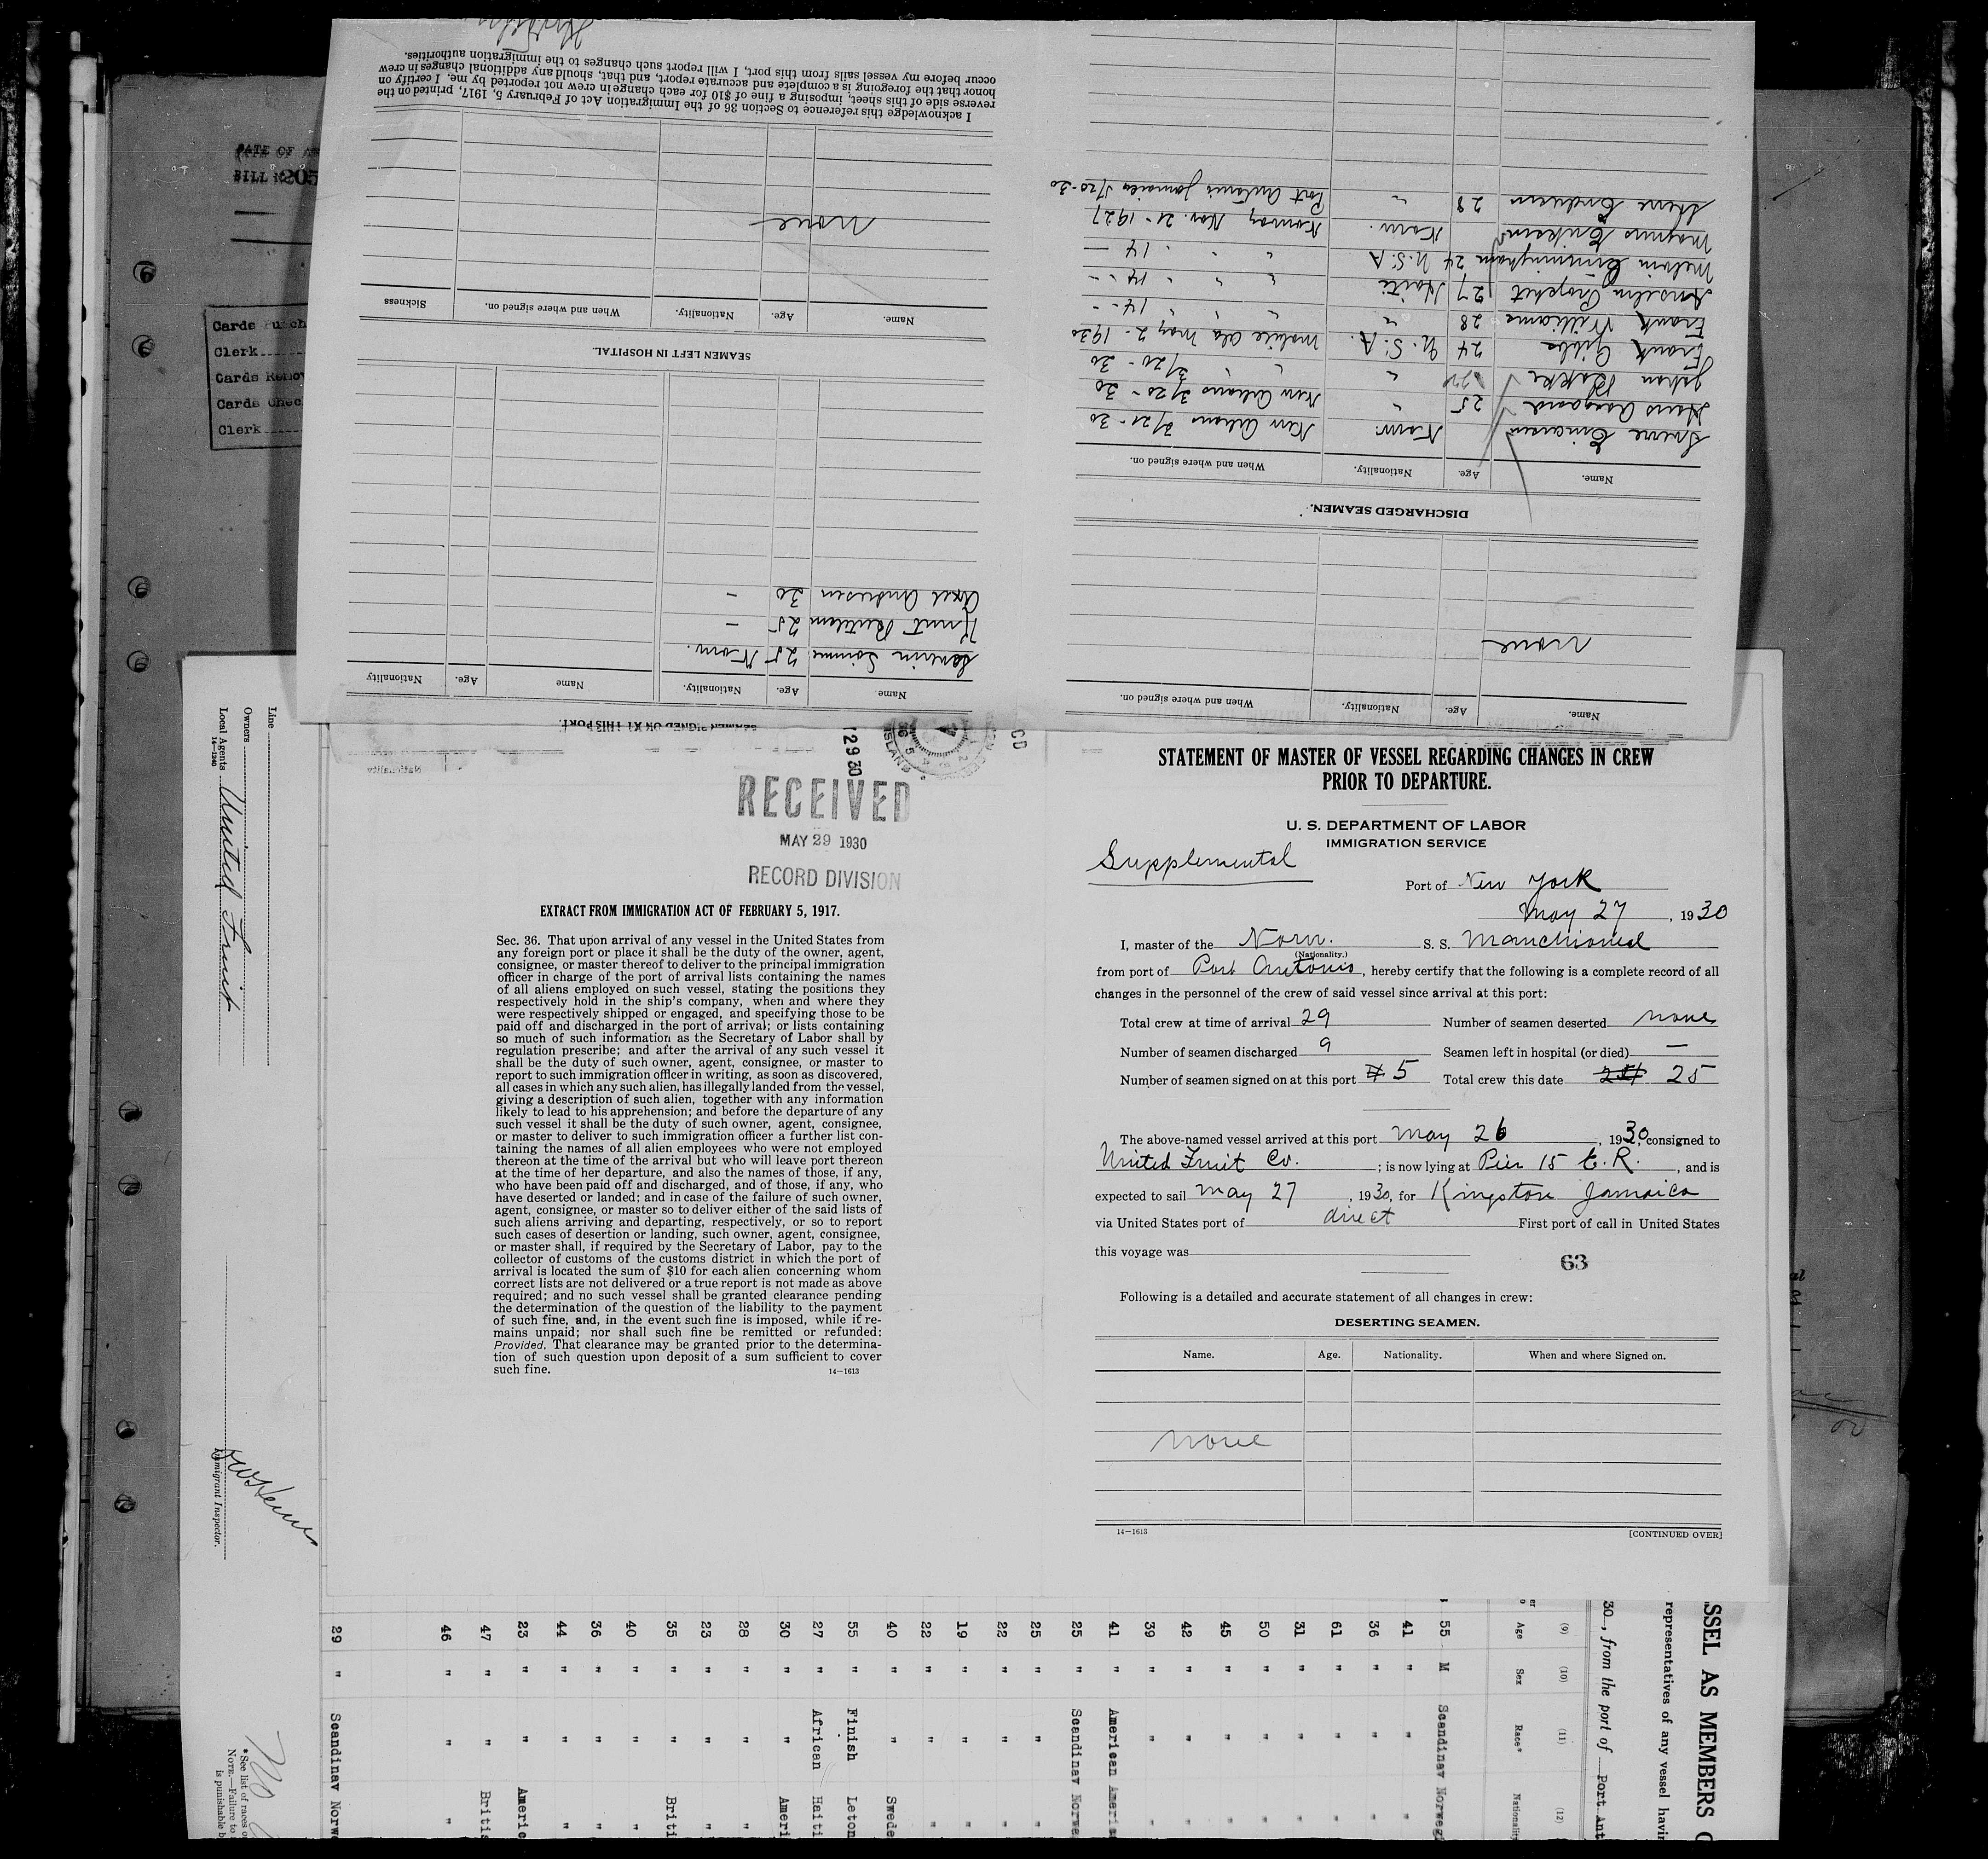 STATEMENT OF MASTER OF VESSEL REGARDING CHANGES IN CREW
PRIOR TO DEPARTURE.
U. S. DEPARTMENT OF LABOR
IMMIGRATION SERVICE
Supplemental
Port of New York
May 27, 1930
I, master of the Norw. S. S. Manchioneal
(Nationality.)
from port of Port Antonio, hereby certify that the following is a complete record of all
changes in the personnel of the crew of said vessel since arrival at this port:
Total crew at time of arrival 29 Number of seamen deserted none
Number of seamen discharged 9 Seamen left in hospital (or died) —
Number of seamen signed on at this port 5 Total crew this date 25
The above-named vessel arrived at this port May 26, 1930, consigned to
United Fruit Co. ; is now lying at Pier 15 E. R. , and is
expected to sail May 27, 1930, for Kingston Jamaica
via United States port of direct First port of call in United States
this voyage was
63
Following is a detailed and accurate statement of all changes in crew:
DESERTING SEAMEN.
Name. Age. Nationality. When and where Signed on.
none
14—1613 [CONTINUED OVER]
RECEIVED
MAY 29 1930
RECORD DIVISION
EXTRACT FROM IMMIGRATION ACT OF FEBRUARY 5, 1917.
Sec. 36. That upon arrival of any vessel in the United States from
any foreign port or place it shall be the duty of the owner, agent,
consignee, or master thereof to deliver to the principal immigration
officer in charge of the port of arrival lists containing the names
of all aliens employed on such vessel, stating the positions they
respectively hold in the ship's company, when and where they
were respectively shipped or engaged, and specifying those to be
paid off and discharged in the port of arrival; or lists containing
so much of such information as the Secretary of Labor shall by
regulation prescribe; and after the arrival of any such vessel it
shall be the duty of such owner, agent, consignee, or master to
report to such immigration officer in writing, as soon as discovered,
all cases in which any such alien, has illegally landed from the vessel,
giving a description of such alien, together with any information
likely to lead to his apprehension; and before the departure of any
such vessel it shall be the duty of such owner, agent, consignee,
or master to deliver to such immigration officer a further list con-
taining the names of all alien employees who were not employed
thereon at the time of the arrival but who will leave port thereon
at the time of her departure, and also the names of those, if any,
who have been paid off and discharged, and of those, if any, who
have deserted or landed; and in case of the failure of such owner,
agent, consignee, or master so to deliver either of the said lists of
such aliens arriving and departing, respectively, or so to report
such cases of desertion or landing, such owner, agent, consignee,
or master shall, if required by the Secretary of Labor, pay to the
collector of customs of the customs district in which the port of
arrival is located the sum of $10 for each alien concerning whom
correct lists are not delivered or a true report is not made as above
required; and no such vessel shall be granted clearance pending
the determination of the question of the liability to the payment
of such fine, and, in the event such fine is imposed, while it re-
mains unpaid; nor shall such fine be remitted or refunded:
Provided, That clearance may be granted prior to the determina-
tion of such question upon deposit of a sum sufficient to cover
such fine.
14—1613
Name. Age. Nationality. When and where signed on.
none
DISCHARGED SEAMEN.
Name. Age. Nationality. When and where signed on.
Sverre Einarsen Norw. New Orleans 3/20-30
Hans Aasgaard 25 " New Orleans 3/20-30
Johan Bakke " " " 3/20-30
Frank Gibbs 24 U.S.A. Mobile Ala May 2-1930
Frank Williams 28 " " " 14 -
Anselm Prophet 27 Haiti " " " 14 -
Melvin Cunningham 24 U.S.A " " " 14 -
Magnus Eriksen Norw. Norway Nov. 21-1927
28 " Port Antonio Jamaica
SEAMEN SIGNED ON AT THIS PORT.
Name. Age. Nationality. Name Age. Nationality
25 Norw.
Knut 25 -
Axel Andresen 30 -
SEAMEN LEFT IN HOSPITAL.
Name. Age. Nationality. When and where signed on. Sickness
none
I acknowledge this reference to Section 36 of the Immigration Act of February 5, 1917, printed on the
reverse side of this sheet, imposing a fine of $10 for each change in crew not reported by me. I certify on
honor that the foregoing is a complete and accurate report, and that, should any additional changes in crew
occur before my vessel sails from this port, I will report such changes to the immigration authorities.
BILL
205
Cards
Clerk
Cards
Cards
Clerk
Line
Owners
Local Agents United Fruit
14—1240
Immigrant Inspector.
*See list of races
NOTE.—Failure to
is punishable b
SSEL AS MEMBERS
representatives of any vessel havin
30, from the port of Port Ant
(9) (10) (11) (12)
Age Sex Race* Nationality
55 M Scandinav Norweg
41 " " "
36 " " "
61 " " "
31 " " "
50 " " "
45 " " "
42 " " "
39 " " "
41 " American Americ
25 " Scandinav Norwe
25 " " "
22 " " "
19 " " "
22 " " "
40 " " Swede
55 " Finish Leton
27 " African Haiti
30 " " Ameri
28 " " "
23 " " "
35 " " Briti
40 " " "
36 " " "
44 " " "
23 " " Americ
47 " " Britis
46 " " "
29 " Scandinav Norwe